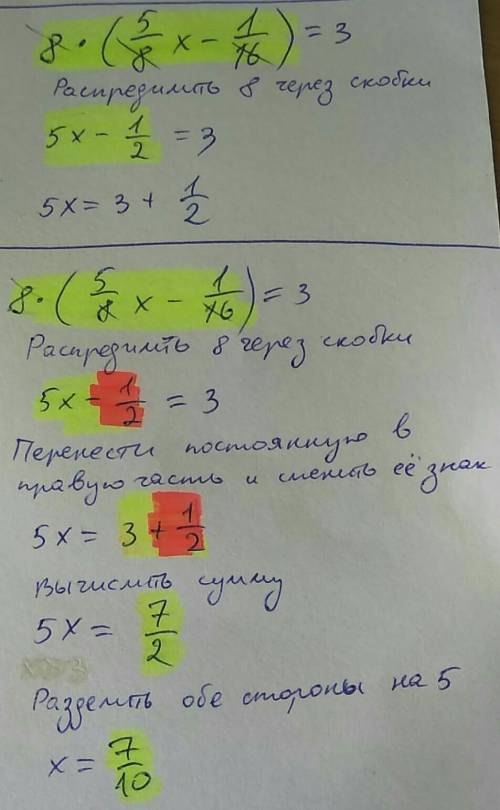 8 · (5/8 x − 1/16) = 3
Распредимть 8 через скобки
5x − 1/2 = 3
5x = 3 + 1/2
8 · (5/8 x − 1/16) = 3
Распредимть 8 через скобки
5x − 1/2 = 3
Перенести постоянную в
правую часть и сменить её знак
5x = 3 + 1/2
Вычислить сумму
5x = 7/2
Разделить обе стороны на 5
x = 7/10